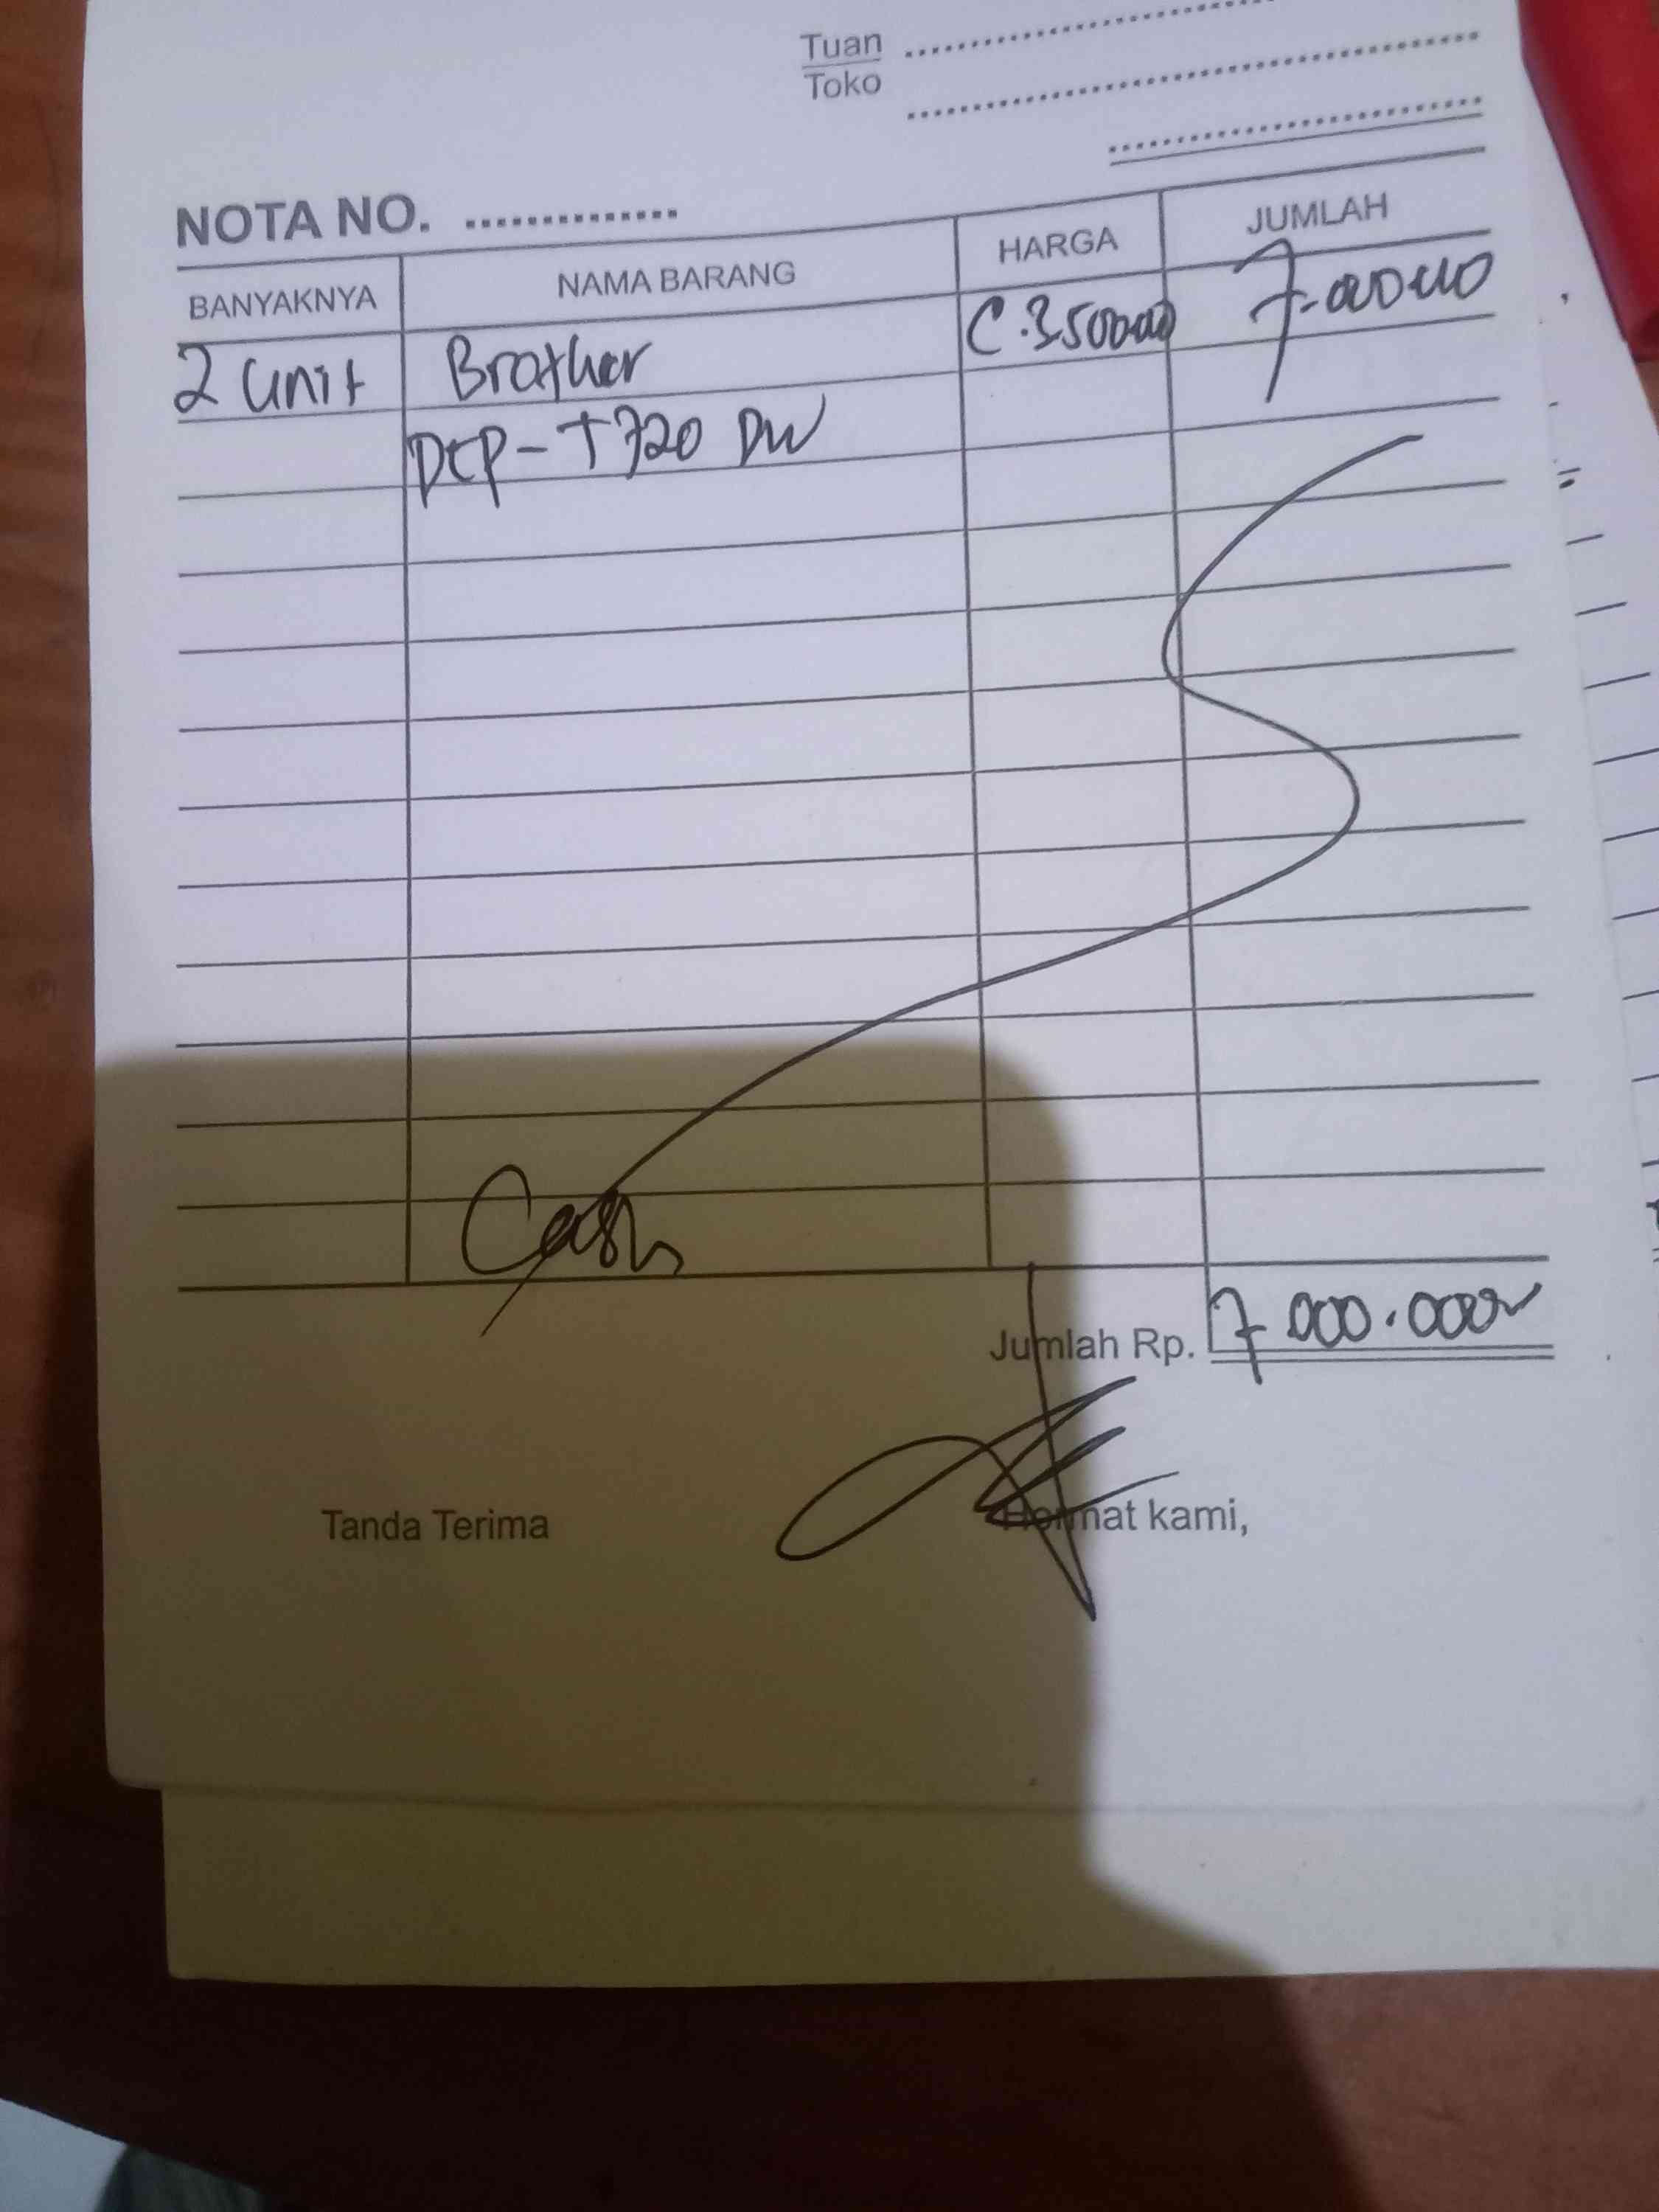 Tuan
Toko
NOTA NO. ..............
BANYAKNYA NAMA BARANG HARGA JUMLAH
2 unit Brother C.3500000 7.000000
DCP-T720 DW
Cash
Jumlah Rp. 7.000.000
Tanda Terima Hormat kami,